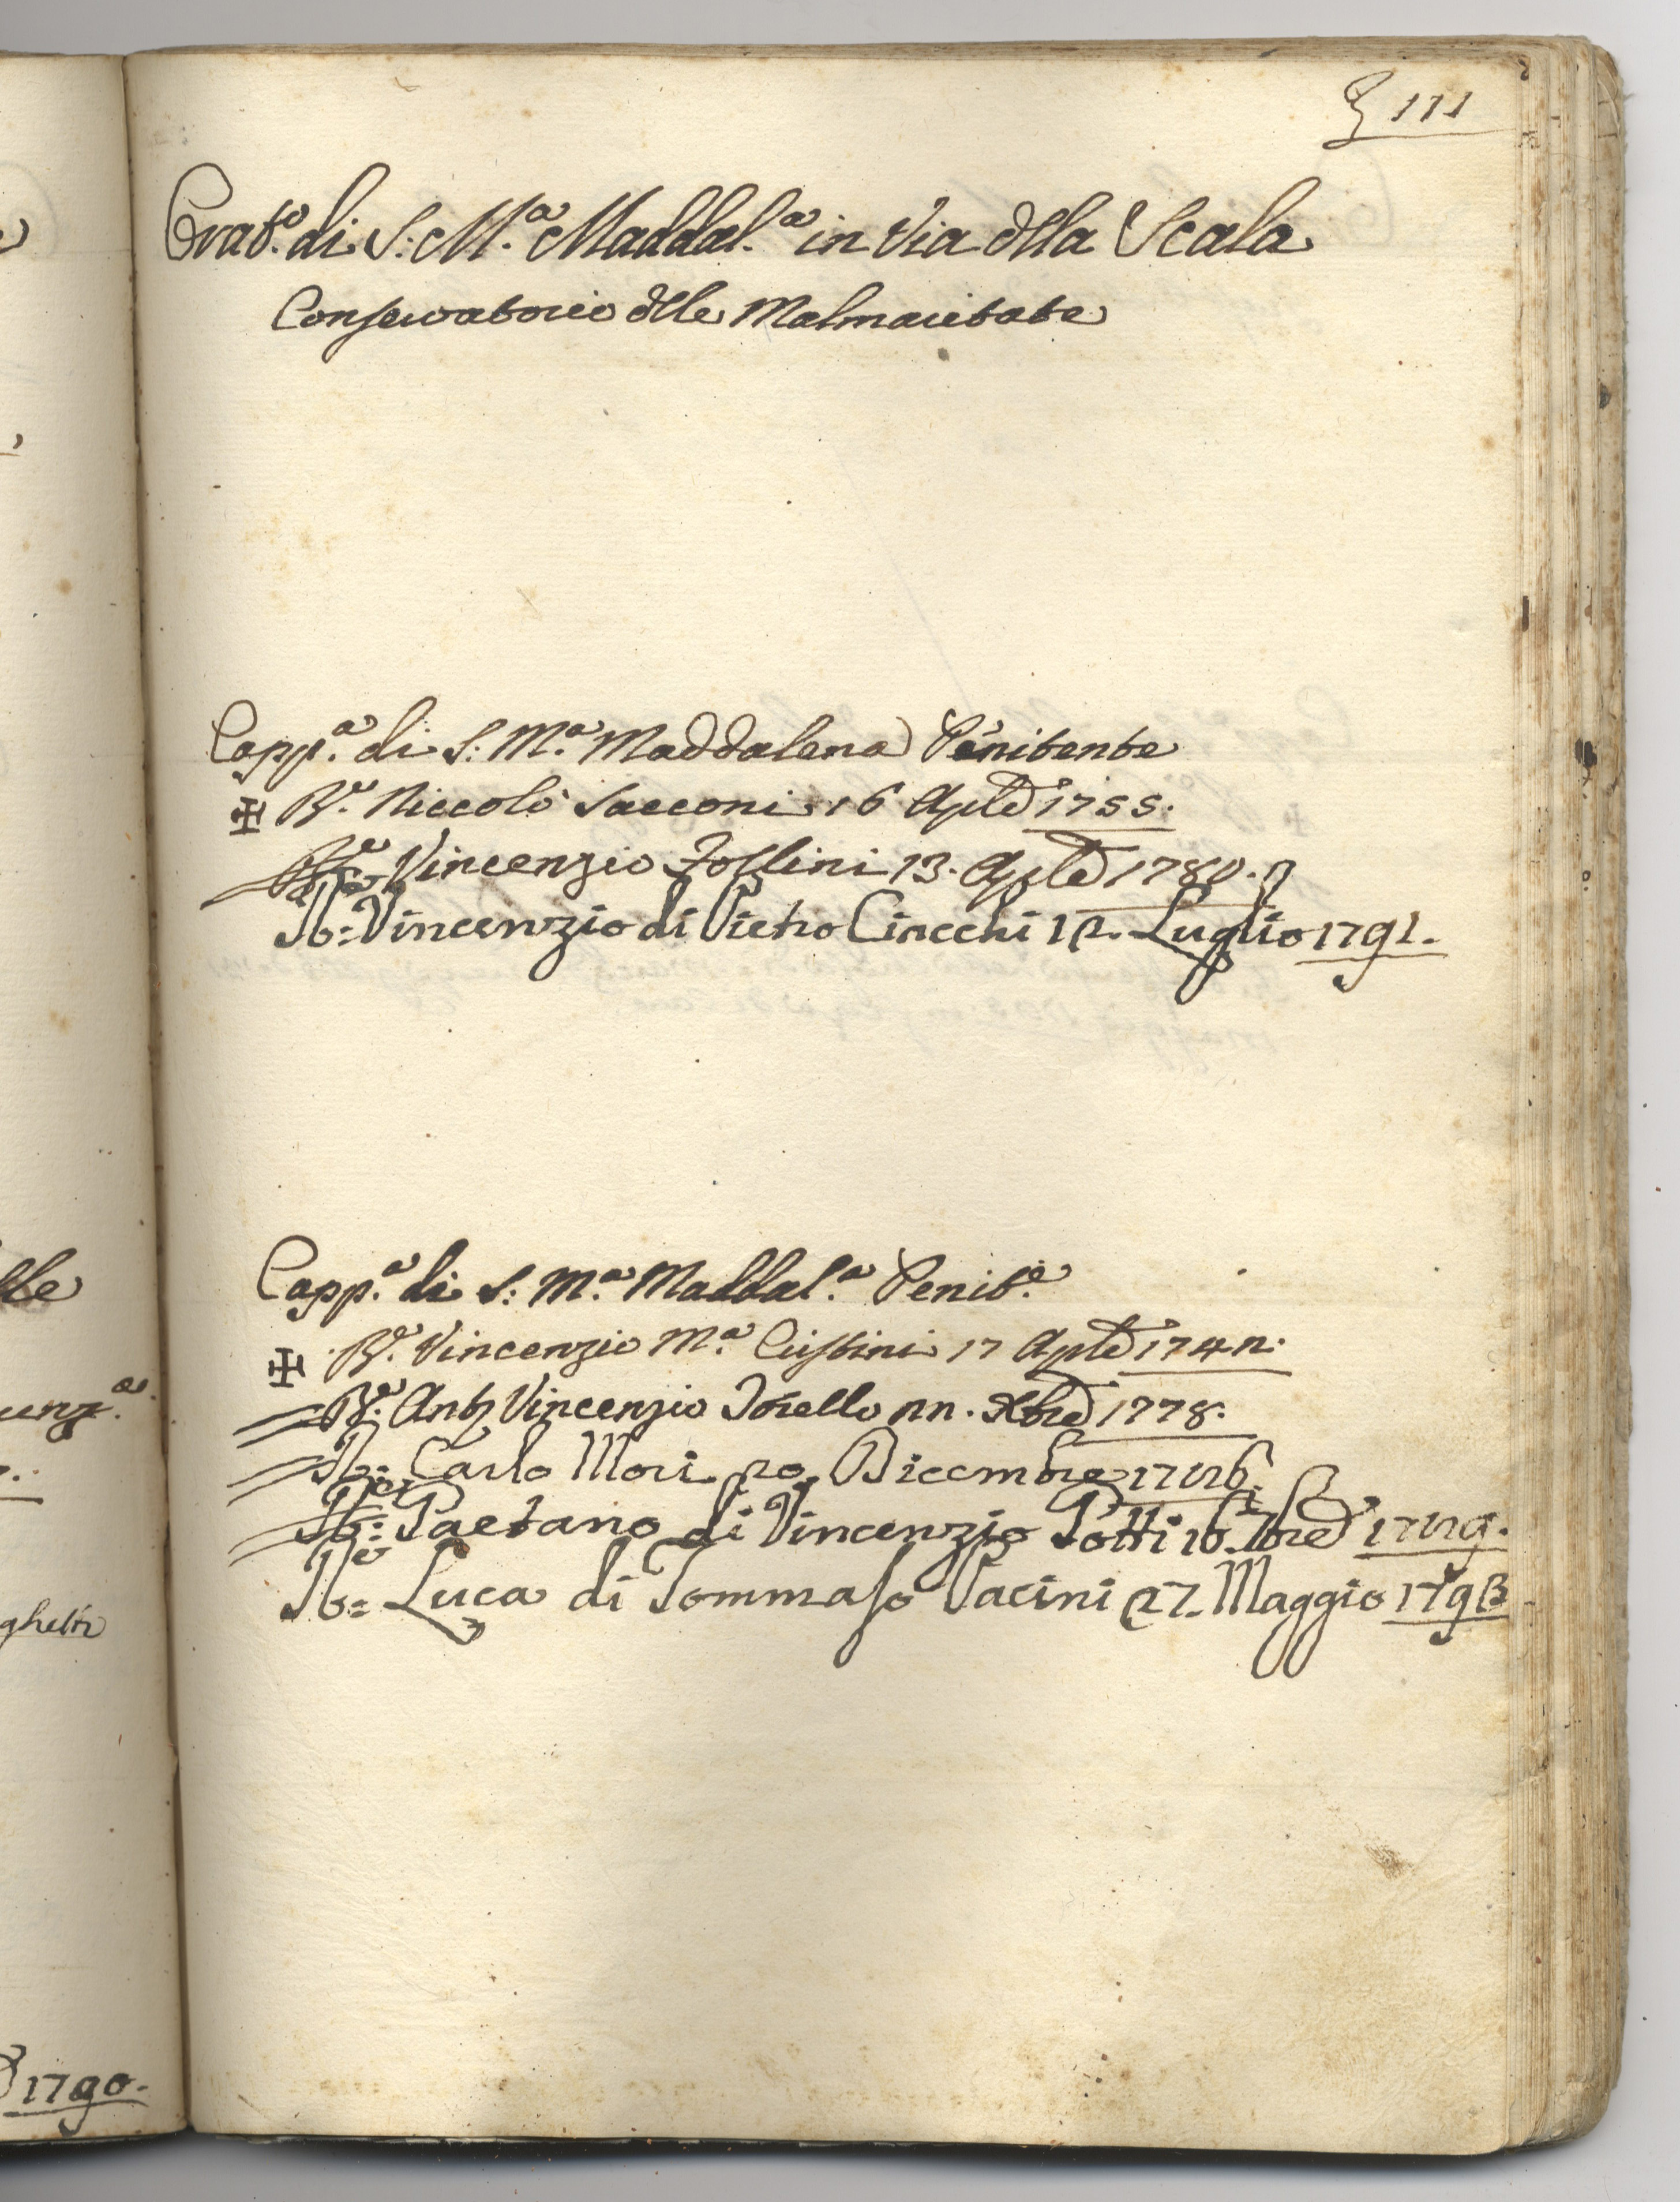 111
Orat.º di S: M.ª Maddal.ª in Via dlla Scala
Conservatorio dlle Malmaritate
Capp.ª di S: M.ª Maddalena Penitente
Niccolò Sacconi 16 Aple 1755.
Vincenzio Follini 13. Aple 1780.
Vincenzio di Pietro Ciacchi 12. Luglio 1791.
Capp.ª di S: M.ª Maddal.ª Penit.e
Vincenzio M.ª 17 Aple 1742.
Ant.º Vincenzio 22. Xbre 1778.
Carlo Mori 20, Dicembre 1786
Gaetano di Vincenzio Gotti 1789.
Luca di Tommaso Pacini 27. Maggio 1793
lle
ghetti
1790.